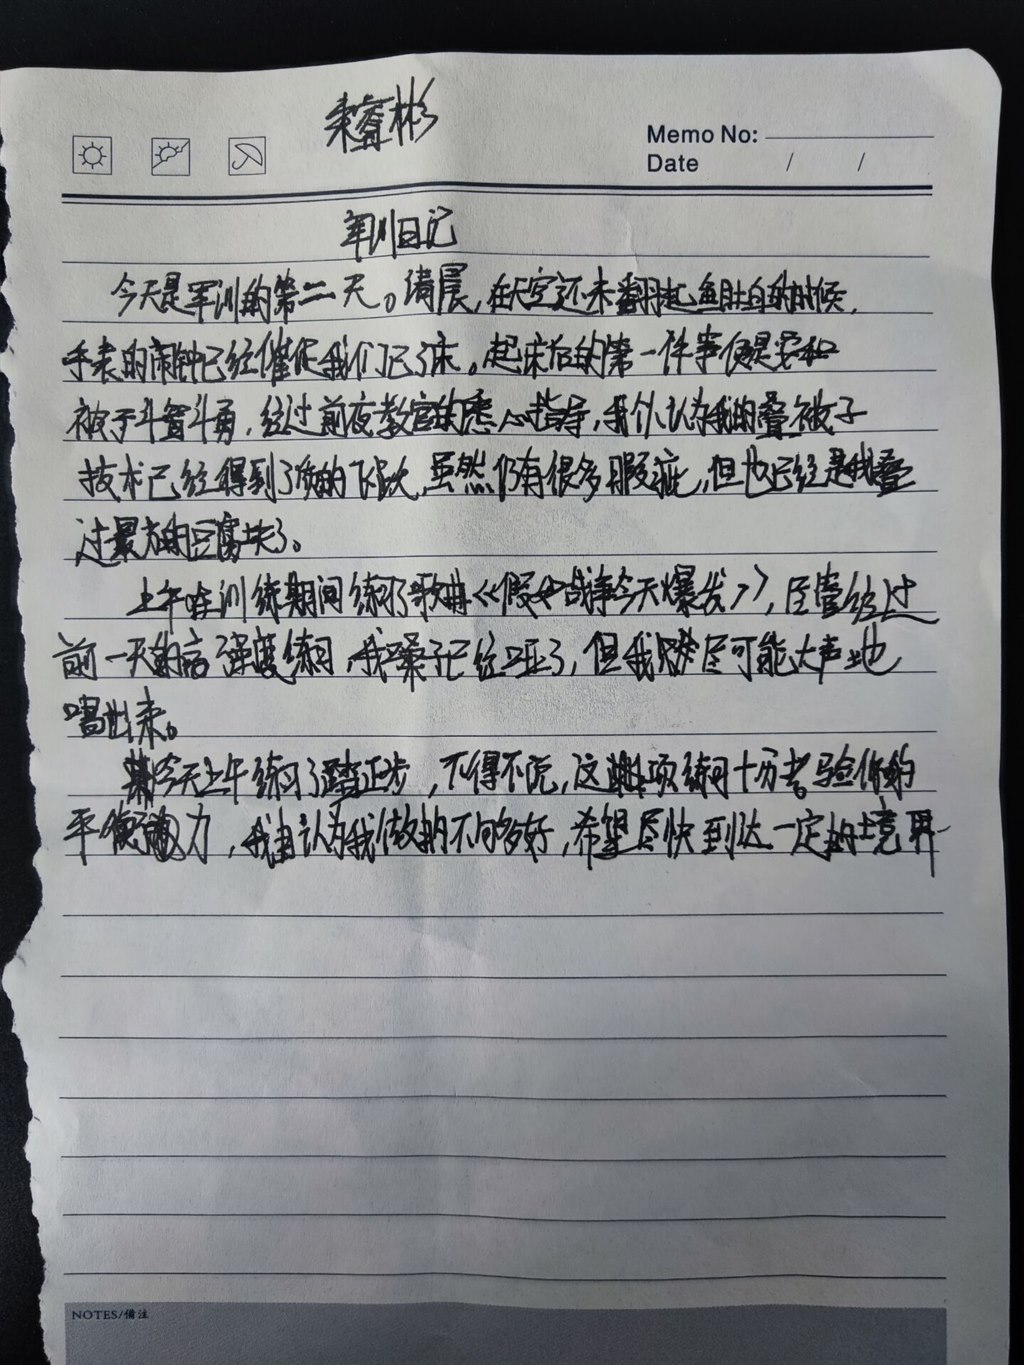 Memo No:
Date / /
军训日记
今天是军训的第二天。清晨,在天空还未翻起鱼肚白的时候,
手表的闹钟已经催促我们已了床。起床后的第一件事便是要和
被子斗智斗勇,经过前夜教官的悉心指导,我个认为我的叠被子
技术已经得到了质的飞跃,虽然仍有很多瑕疵,但也已经是我叠
过最方的豆腐块了。
上午在训练期间练习了歌曲《假如战争今天爆发》,尽管经过
前一天的高强度练习,我嗓子已经哑了,但我尽可能大声地
唱出来。
今天上午练习了踏正步,不得不说,这项练习十分考验你的
平衡能力,我认为我做的不够好,希望尽快到达一定的境界
NOTES/備注